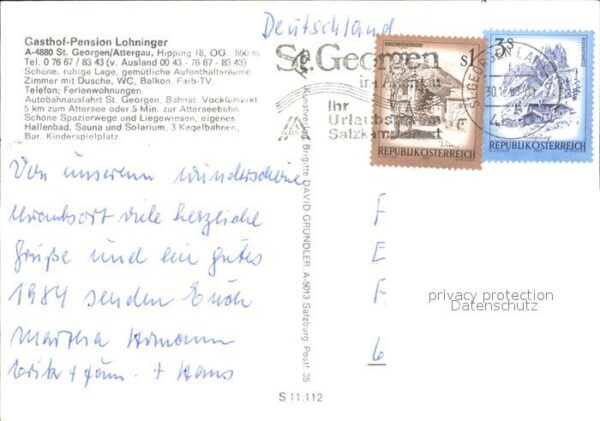 Deutschland
Gasthof-Pension Lohninger
A-4880 St. Georgen/Attergau, Hipping 18, OÖ. 550 m
Tel. 0 76 67 / 83 43 (v. Ausland 00 43 - 76 67 - 83 43)
Schöne, ruhige Lage, gemütliche Aufenthaltsräume,
Zimmer mit Dusche, WC, Balkon, Farb-TV,
Telefon; Ferienwohnungen.
Autobahnausfahrt St. Georgen. Bahnst. Vöcklamarkt.
5 km zum Attersee oder 5 Min. zur Atterseebahn.
Schöne Spazierwege und Liegewiesen, eigenes
Hallenbad, Sauna und Solarium, 3 Kegelbahnen,
Bar. Kinderspielplatz.
St. Georgen
Ihr
Salzkammergut
S1
REPUBLIK ÖSTERREICH
3S
REPUBLIK ÖSTERREICH
Von unserem wunderschönen
Urlaubsort viele herzliche
Grüße und ein gutes
1984 senden Euch
+ Hans
Kunstverlag Brigitte DAVID-GRÜNDLER A-5013 Salzburg, Postf. 35
S 11.112
privacy protection
Datenschutz